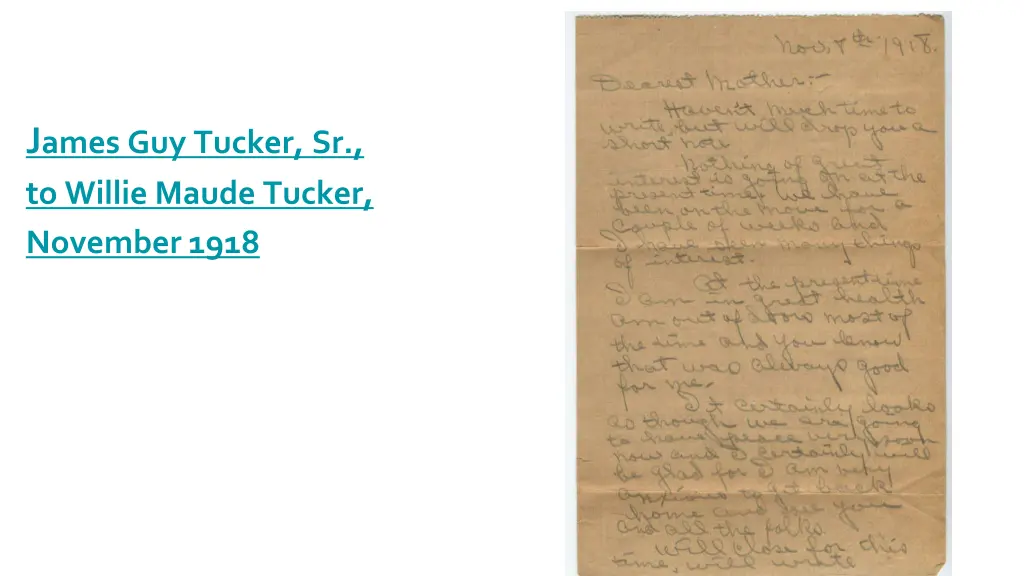 James Guy Tucker, Sr.,
to Willie Maude Tucker,
November 1918
Nov. 7th 1918.
Dearest Mother:-
Haven't much time to
write, but will drop you a
short note
Nothing of great
interest is going on at the
present time, we have
been on the move for a
couple of weeks and
I have seen many things
of interest.
At the present time
I am in great health
am out of doors most of
the time and you know
that was always good
for me.
It certainly looks
as though we are going
to have peace very soon
now and I certainly will
be glad for I am very
anxious to get back
home and see you
and all the folks.
Will close for this
time, will write